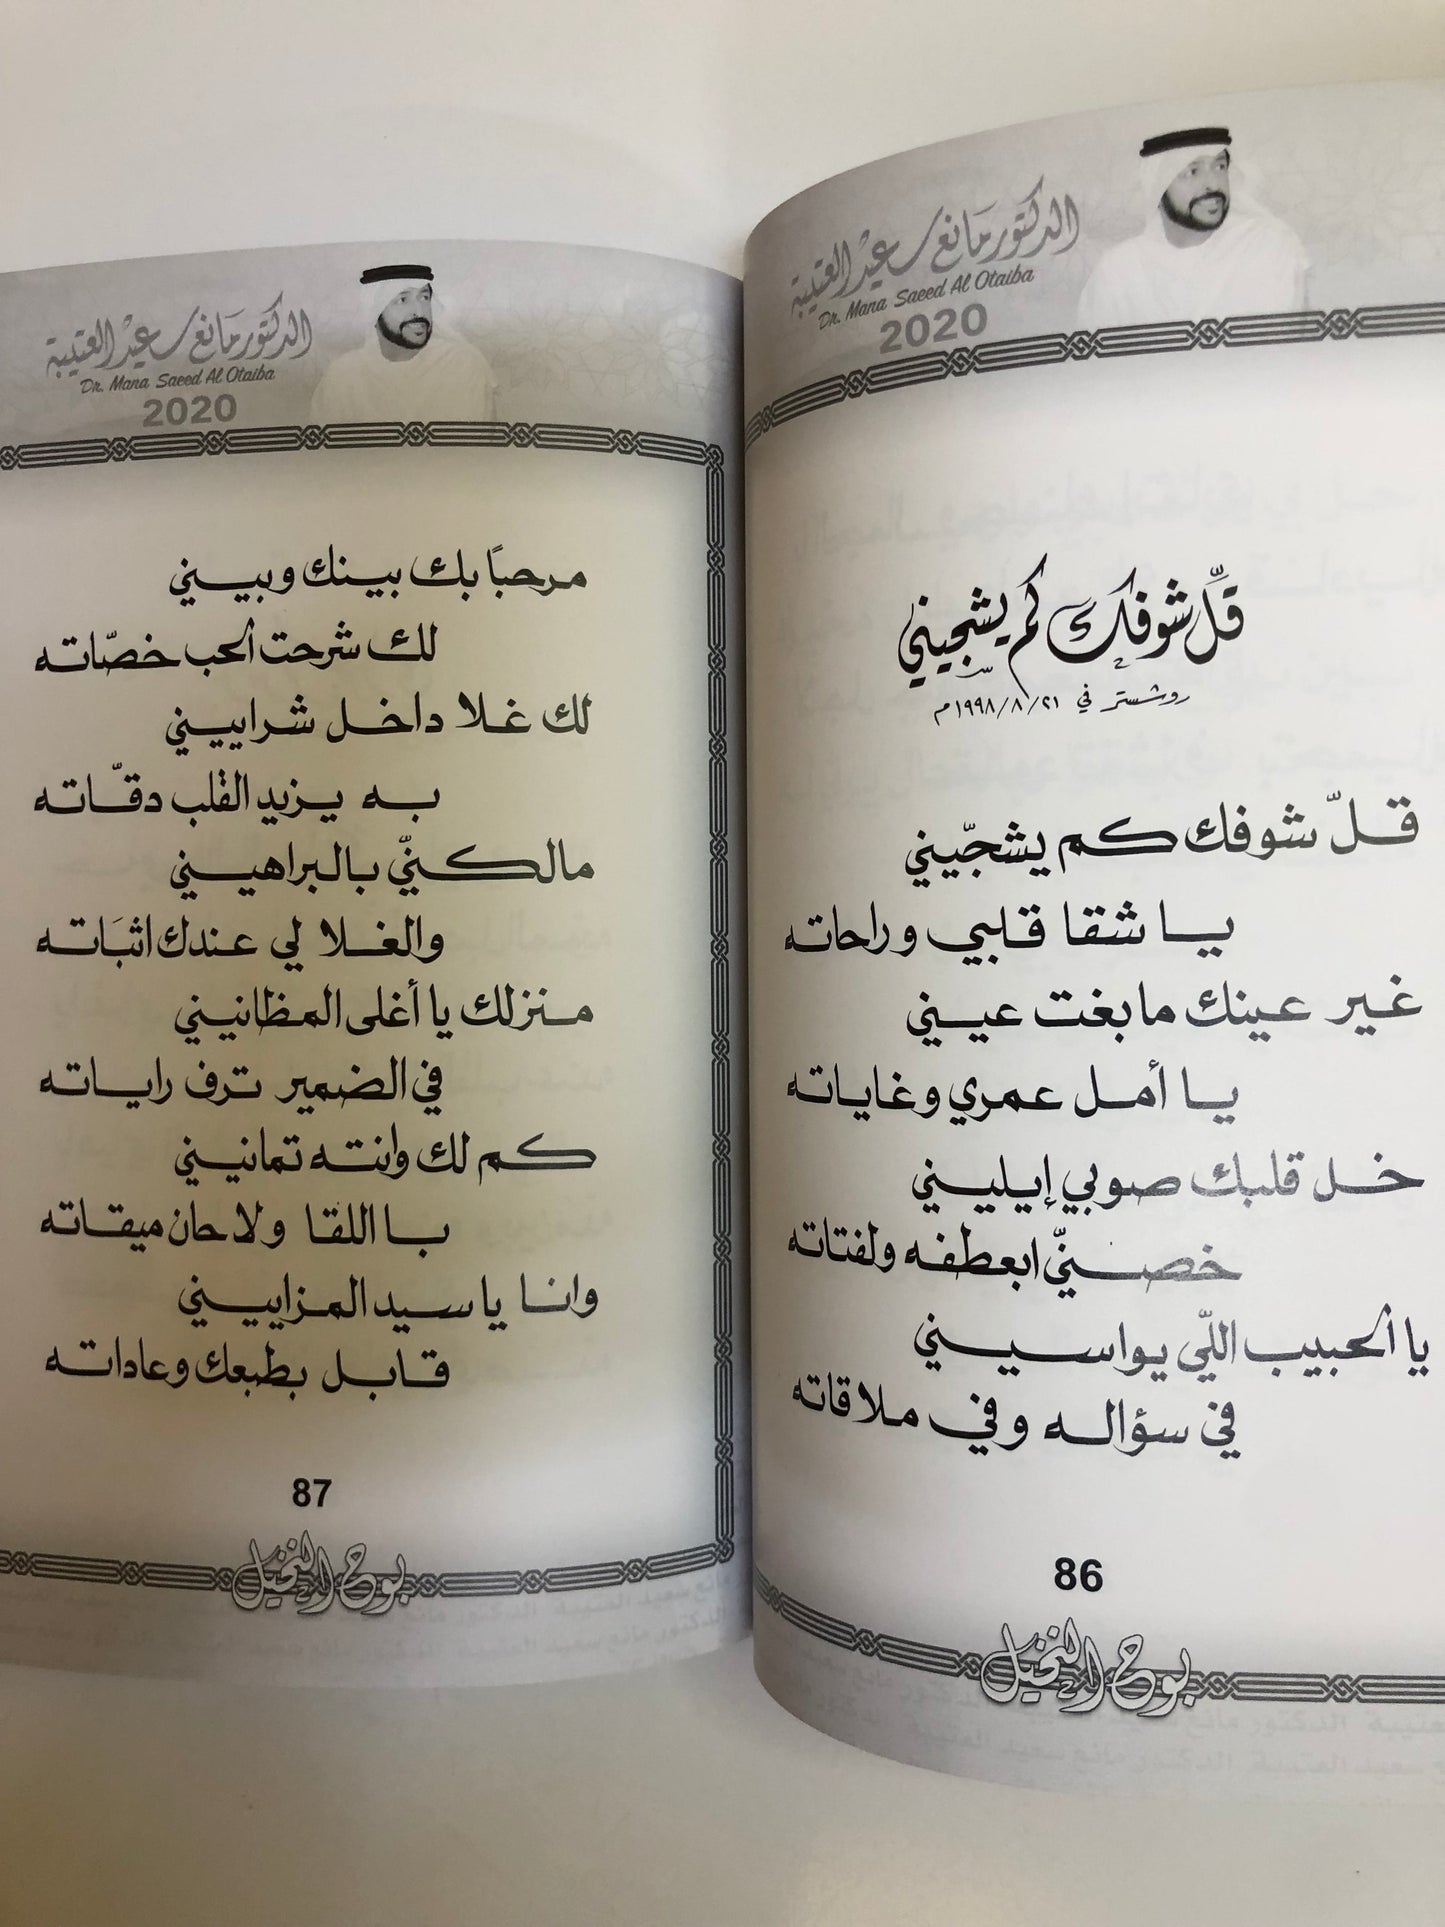 الدكتور مانع سعيد العتيبة
Dr. Mana Saeed Al Otaiba
2020
قلِّ شوفك كم يشجيني
روشستر في ٢١/٨/١٩٩٨م
قلّ شوفك كم يشجّيني
يا شقا قلبي وراحاته
غير عينك ما بغت عيني
يا أمل عمري وغاياته
خل قلبك صوبي إيليني
خصنيّ ابعطفه ولفتاته
يا الحبيب اللّي يواسيني
في سؤاله وفي ملاقاته
86
بوح النخيل
الدكتور مانع سعيد العتيبة
Dr. Mana Saeed Al Otaiba
2020
مرحباً بك بينك وبيني
لك شرحت الحب خصّاته
لك غلا داخل شراييني
به يزيد القلب دقّاته
مالكنيّ بالبراهيني
والغلا لي عندك اثبَاته
منزلك يا أغلى المظانيني
في الضمير ترف راياته
كم لك وانته تمانيني
با اللقا ولا حان ميقاته
وانا يا سيد المزاييني
قابل بطبعك وعاداته
87
بوح النخيل